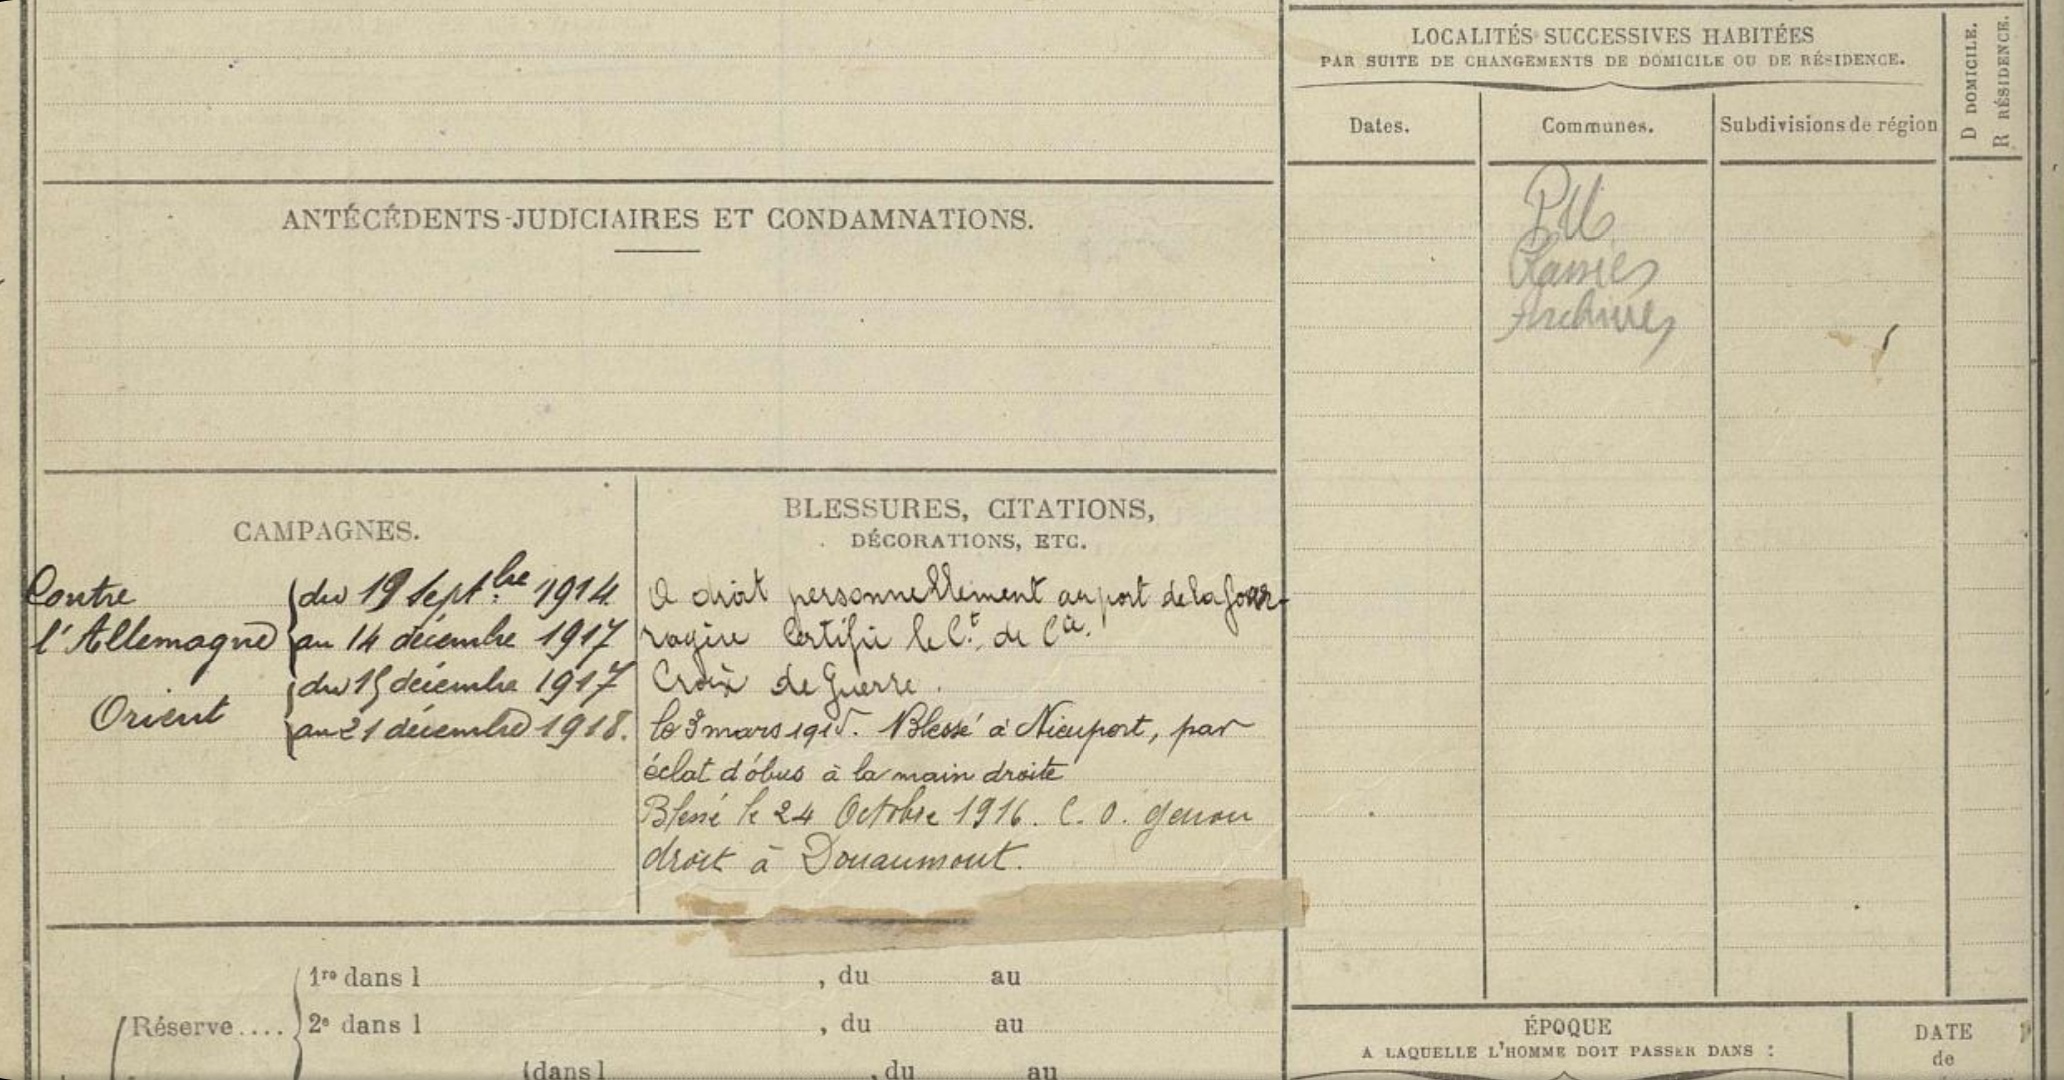 ANTÉCÉDENTS-JUDICIAIRES ET CONDAMNATIONS.
CAMPAGNES.
Contre
l'Allemagne
du 19 Sept.bre 1914
au 14 décembre 1917
Orient
du 15 décembre 1917
au 21 décembre 1918.
BLESSURES, CITATIONS,
DÉCORATIONS, ETC.
A droit personnellement au port de la four-
ragère Certifié le Ct. de Cie.
Croix de Guerre.
le 3 mars 1915. Blessé à Nieuport, par
éclat d'obus à la main droite
Blessé le 24 Octobre 1916. E. O. genou
droit à Douaumont.
Réserve....
1re dans l , du au
2e dans l , du au
dans l , du au
LOCALITÉS SUCCESSIVES HABITÉES
PAR SUITE DE CHANGEMENTS DE DOMICILE OU DE RÉSIDENCE.
Dates.
Communes.
Subdivisions de région
D DOMICILE.
R RÉSIDENCE.
Archives
ÉPOQUE
A LAQUELLE L'HOMME DOIT PASSER DANS :
DATE
de